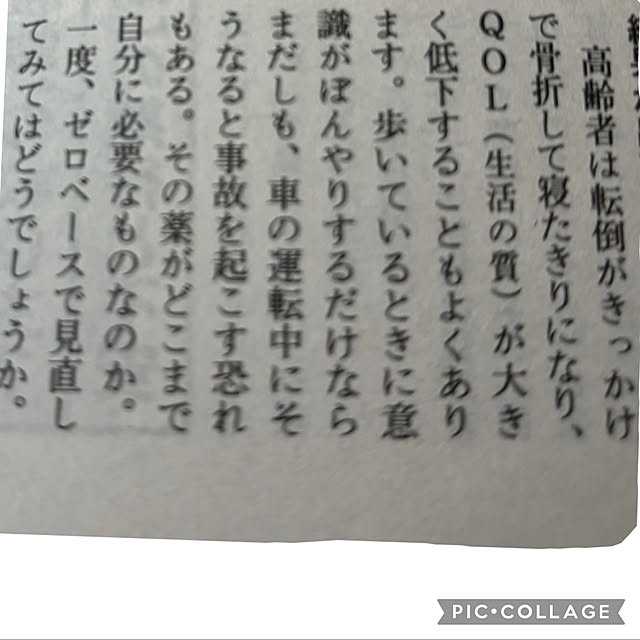 高齢者は転倒がきっかけ
で骨折して寝たきりになり、
QOL(生活の質)が大き
く低下することもよくあり
ます。歩いているときに意
識がぼんやりするだけなら
まだしも、車の運転中にそ
うなると事故を起こす恐れ
もある。その薬がどこまで
自分に必要なものなのか。
一度、ゼロベースで見直し
てみてはどうでしょうか。
PIC•COLLAGE